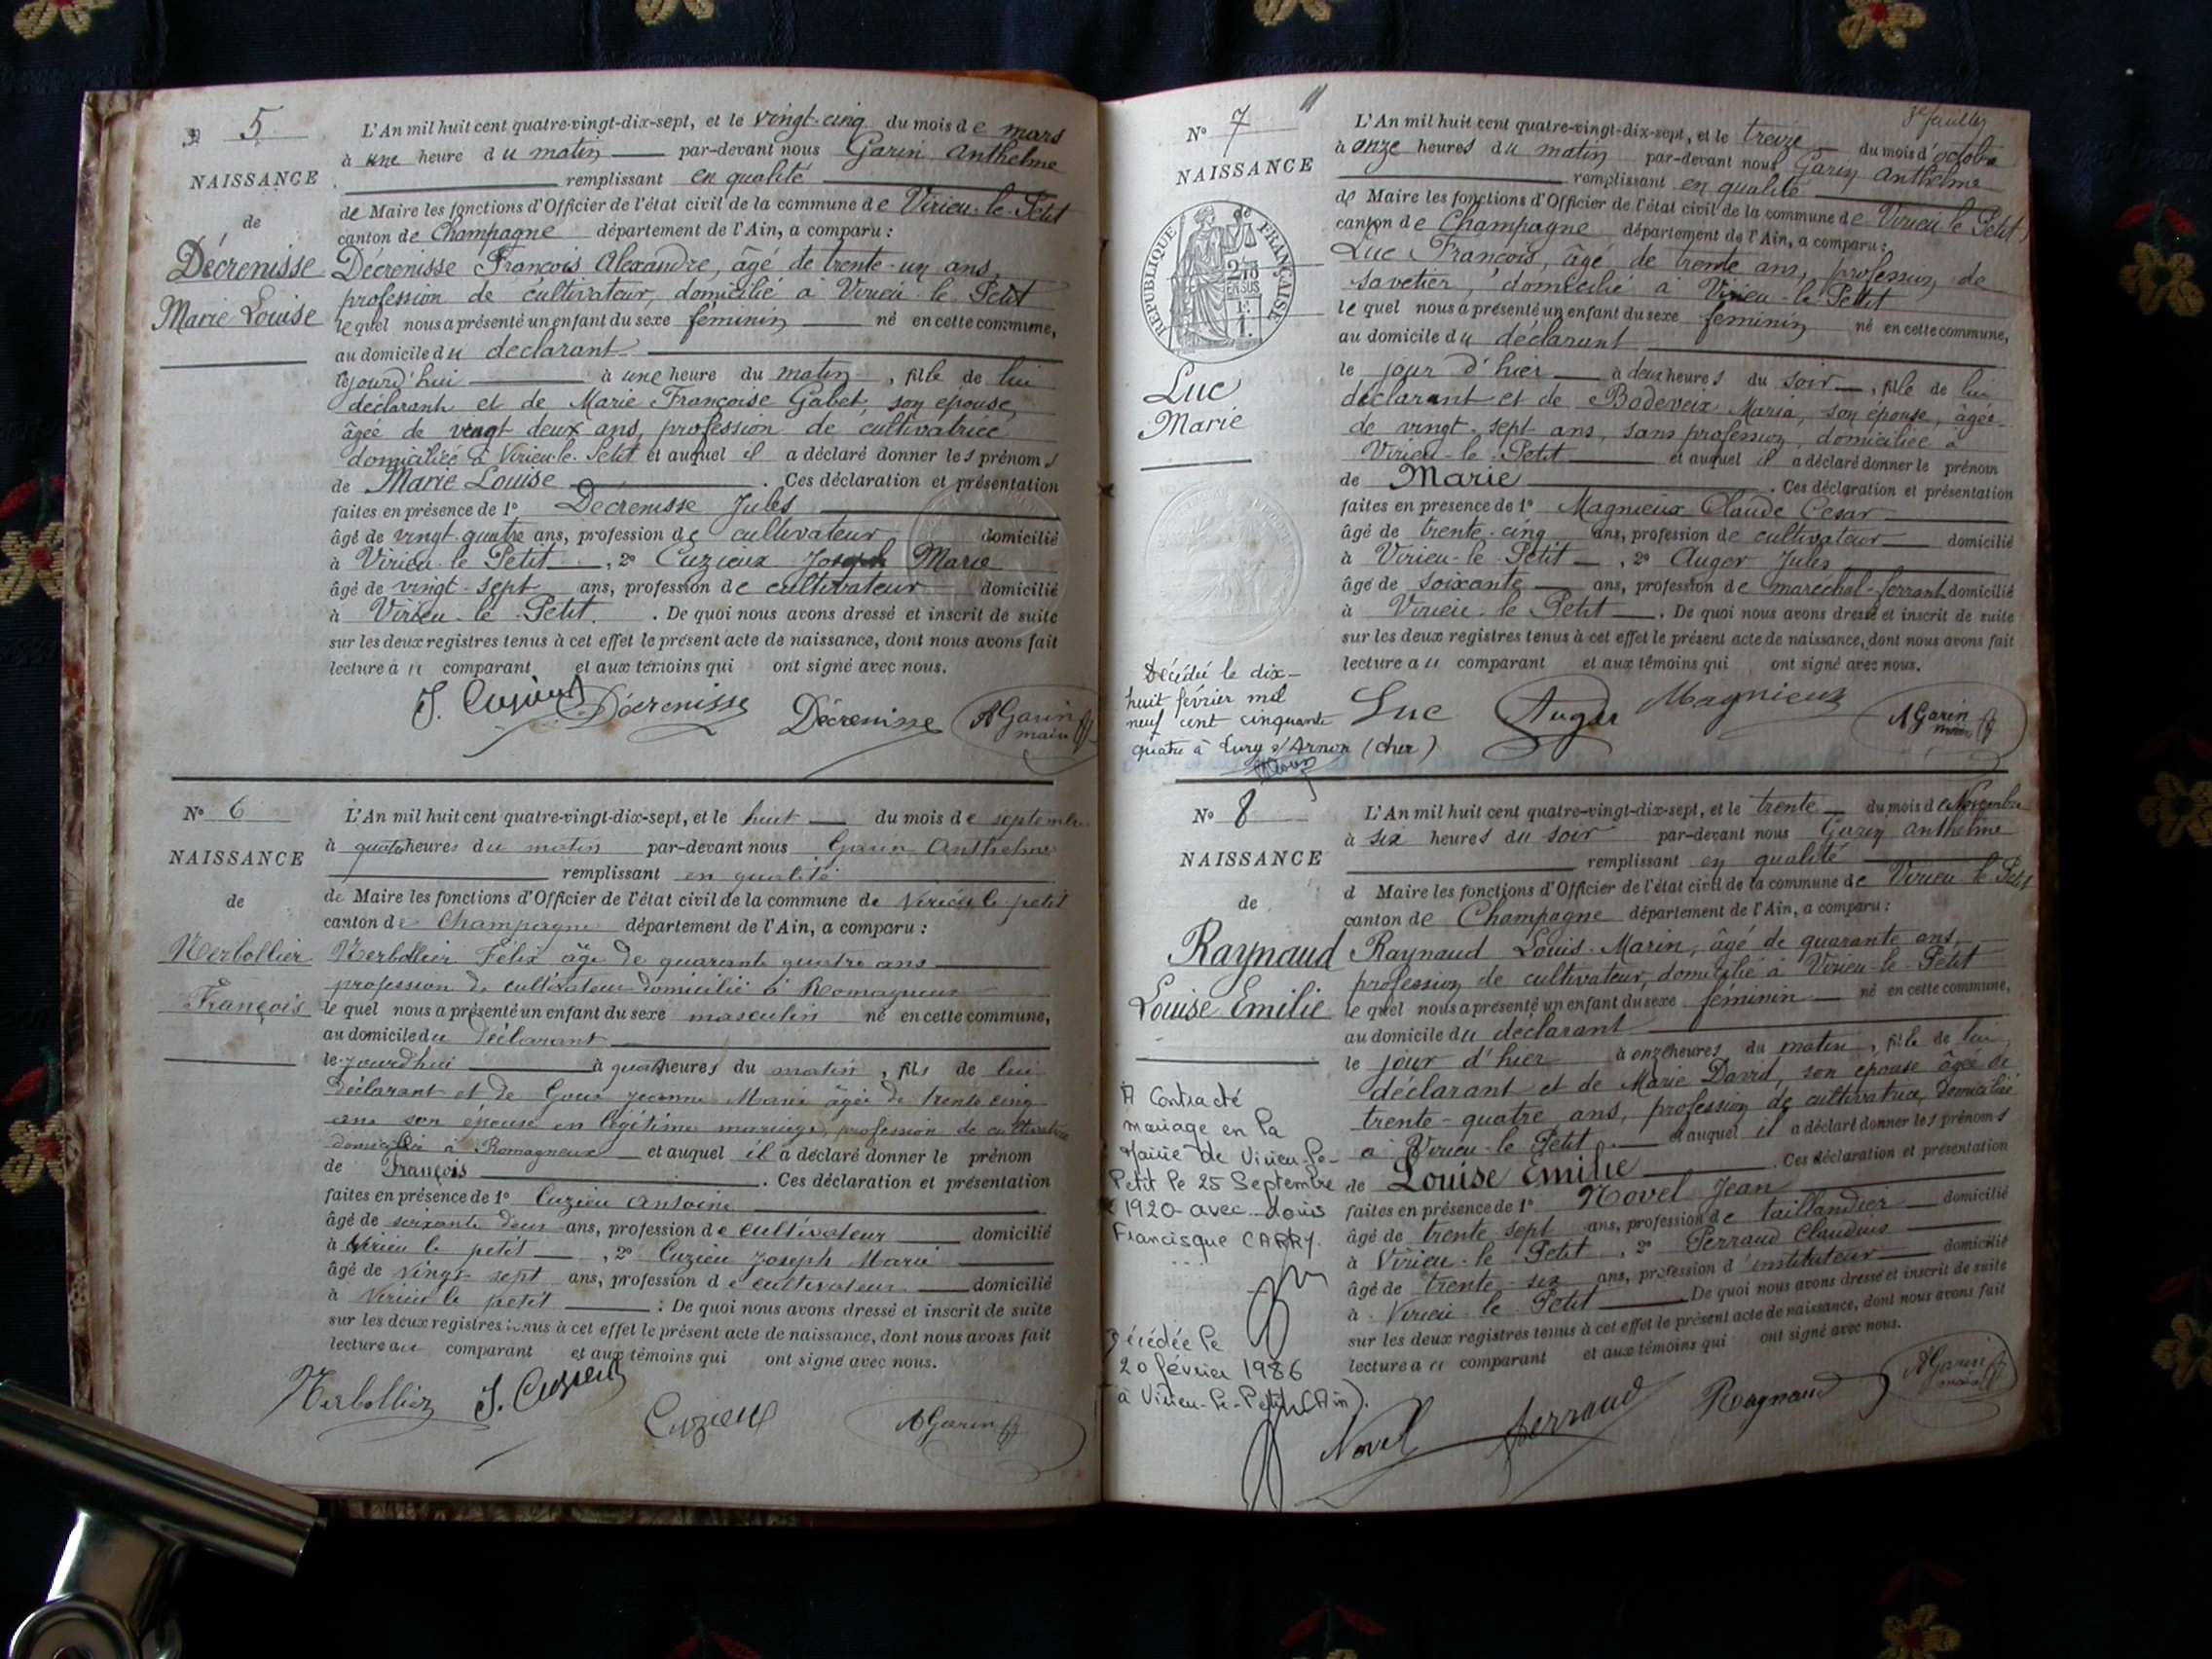 N° 5
NAISSANCE
de
Décrenisse
Marie Louise
L'An mil huit cent quatre-vingt-dix-sept, et le vingt-cinq du mois de mars
à une heure du matin par-devant nous Garin Anthelme
remplissant en qualité
de Maire les fonctions d'Officier de l'état civil de la commune de Virieu-le-Petit
canton de Champagne département de l'Ain, a comparu :
Décrenisse François Alexandre, âgé de trente-un ans,
profession de cultivateur, domicilié à Virieu-le-Petit
lequel nous a présenté un enfant du sexe féminin né en cette commune,
au domicile du déclarant
le jourd'hui à une heure du matin, fille de lui
déclarant et de Marie Françoise Gabet, son épouse,
âgée de vingt deux ans, profession de cultivatrice
domiciliée à Virieu-le-Petit et auquel il a déclaré donner les prénoms
de Marie Louise . Ces déclaration et présentation
faites en présence de 1° Décrenisse Jules
âgé de vingt-quatre ans, profession de cultivateur domicilié
à Virieu-le-Petit , 2° Cuzieux Joseph Marie
âgé de vingt-sept ans, profession de cultivateur domicilié
à Virieu-le-Petit. . De quoi nous avons dressé et inscrit de suite
sur les deux registres tenus à cet effet le présent acte de naissance, dont nous avons fait
lecture au comparant et aux témoins qui ont signé avec nous.
J. Cuzieux Décrenisse Décrenisse A Garin
maire
N° 6
NAISSANCE
de
Nerbollier
François
L'An mil huit cent quatre-vingt-dix-sept, et le huit du mois de septembre
à quatre heures du matin par-devant nous Garin Anthelme
remplissant en qualité
de Maire les fonctions d'Officier de l'état civil de la commune de Virieu le petit
canton de Champagne département de l'Ain, a comparu :
Nerbollier Félix âgé de quarante quatre ans
profession de cultivateur domicilié à Romagneux
lequel nous a présenté un enfant du sexe masculin né en cette commune,
au domicile du déclarant
le jourd'hui à quatre heures du matin, fils de lui
déclarant et de Jeanne Marie âgée de trente cinq
ans son épouse en légitime mariage, profession de cultivatrice
domiciliée à Romagneux et auquel il a déclaré donner le prénom
de François . Ces déclaration et présentation
faites en présence de 1° Cuzieu Antoine
âgé de soixante deux ans, profession de cultivateur domicilié
à Virieu le petit , 2° Cuzieu Joseph Marie
âgé de vingt-sept ans, profession de cultivateur domicilié
à Virieu le petit . De quoi nous avons dressé et inscrit de suite
sur les deux registres tenus à cet effet le présent acte de naissance, dont nous avons fait
lecture au comparant et aux témoins qui ont signé avec nous.
Nerbollier J. Cuzieu Cuzieu A Garin
N° 7
NAISSANCE
de
RÉPUBLIQUE FRANÇAISE
Luc
Marie
Décédée le dix-
huit février mil
neuf cent cinquante
quatre à Lury s/Arnon (Cher)
L'An mil huit cent quatre-vingt-dix-sept, et le treize du mois d'octobre
à onze heures du matin par-devant nous Garin Anthelme
remplissant en qualité
de Maire les fonctions d'Officier de l'état civil de la commune de Virieu le Petit
canton de Champagne département de l'Ain, a comparu :
Luc François, âgé de trente ans, profession de
savetier, domicilié à Virieu-le-Petit
lequel nous a présenté un enfant du sexe féminin né en cette commune,
au domicile du déclarant
le jour d'hier à deux heures du soir, fille de lui
déclarant et de Bodeveix Maria, son épouse, âgée
de vingt-sept ans, sans profession, domiciliée à
Virieu-le-Petit et auquel il a déclaré donner le prénom
de Marie . Ces déclaration et présentation
faites en présence de 1° Magnieux Claude Cesar
âgé de trente-cinq ans, profession de cultivateur domicilié
à Virieu-le-Petit , 2° Auger Jules
âgé de soixante ans, profession de maréchal-ferrant domicilié
à Virieu-le-Petit . De quoi nous avons dressé et inscrit de suite
sur les deux registres tenus à cet effet le présent acte de naissance, dont nous avons fait
lecture au comparant et aux témoins qui ont signé avec nous.
Luc Auger Magnieux A Garin
maire
N° 8
NAISSANCE
de
Raynaud
Louise Emilie
A Contracté
mariage en la
Mairie de Virieu-le-
Petit le 25 Septembre
1920 avec Louis
Francisque CARRY.
Décédée le
20 février 1986
à Virieu-le-Petit (Ain).
L'An mil huit cent quatre-vingt-dix-sept, et le trente du mois de Novembre
à six heures du soir par-devant nous Garin Anthelme
remplissant en qualité
d Maire les fonctions d'Officier de l'état civil de la commune de Virieu le Petit
canton de Champagne département de l'Ain, a comparu :
Raynaud Louis-Marin, âgé de quarante ans,
profession de cultivateur, domicilié à Virieu-le-Petit
lequel nous a présenté un enfant du sexe féminin né en cette commune,
au domicile du déclarant
le jour d'hier à onze heures du matin, fille de lui
déclarant et de Marie David, son épouse âgée de
trente-quatre ans, profession de cultivatrice, domiciliée
à Virieu-le-Petit . et auquel il a déclaré donner les prénoms
de Louise Emilie . Ces déclaration et présentation
faites en présence de 1° Novel Jean
âgé de trente sept ans, profession de taillandier domicilié
à Virieu-le-Petit , 2° Perraud Claudius
âgé de trente-six ans, profession d'instituteur domicilié
à Virieu-le-Petit De quoi nous avons dressé et inscrit de suite
sur les deux registres tenus à cet effet le présent acte de naissance, dont nous avons fait
lecture au comparant et aux témoins qui ont signé avec nous.
Novel Perraud Raynaud A Garin
maire